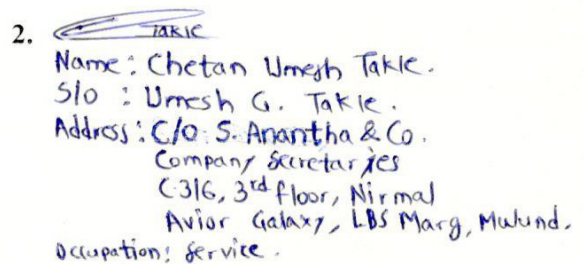 2. Takle
Name: Chetan Umesh Takle.
S/o : Umesh G. Takle.
Address: C/o S. Anantha & Co.
Company Secretaries
C-316, 3rd floor, Nirmal
Avior Galaxy, LBS Marg, Mulund.
Occupation: Service.